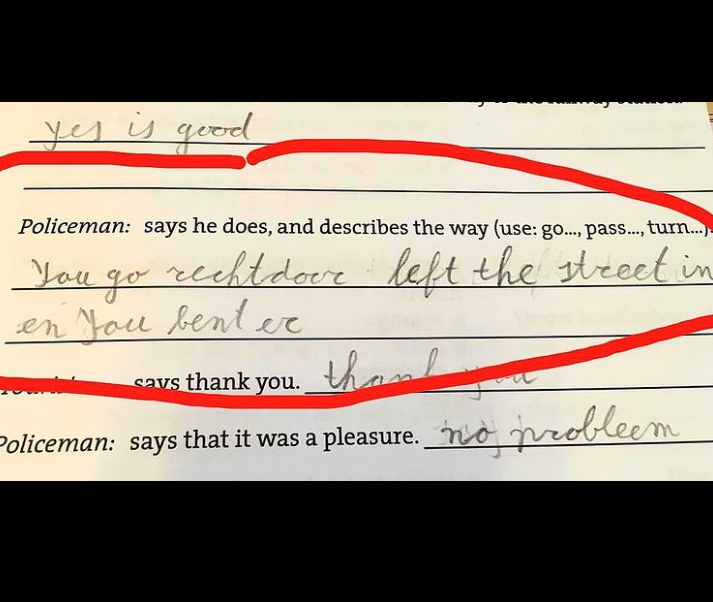 yes is good
Policeman: says he does, and describes the way (use: go..., pass..., turn...).
You go rechtdoor left the street in
en You bent er
says thank you. thank you
Policeman: says that it was a pleasure. no probleem